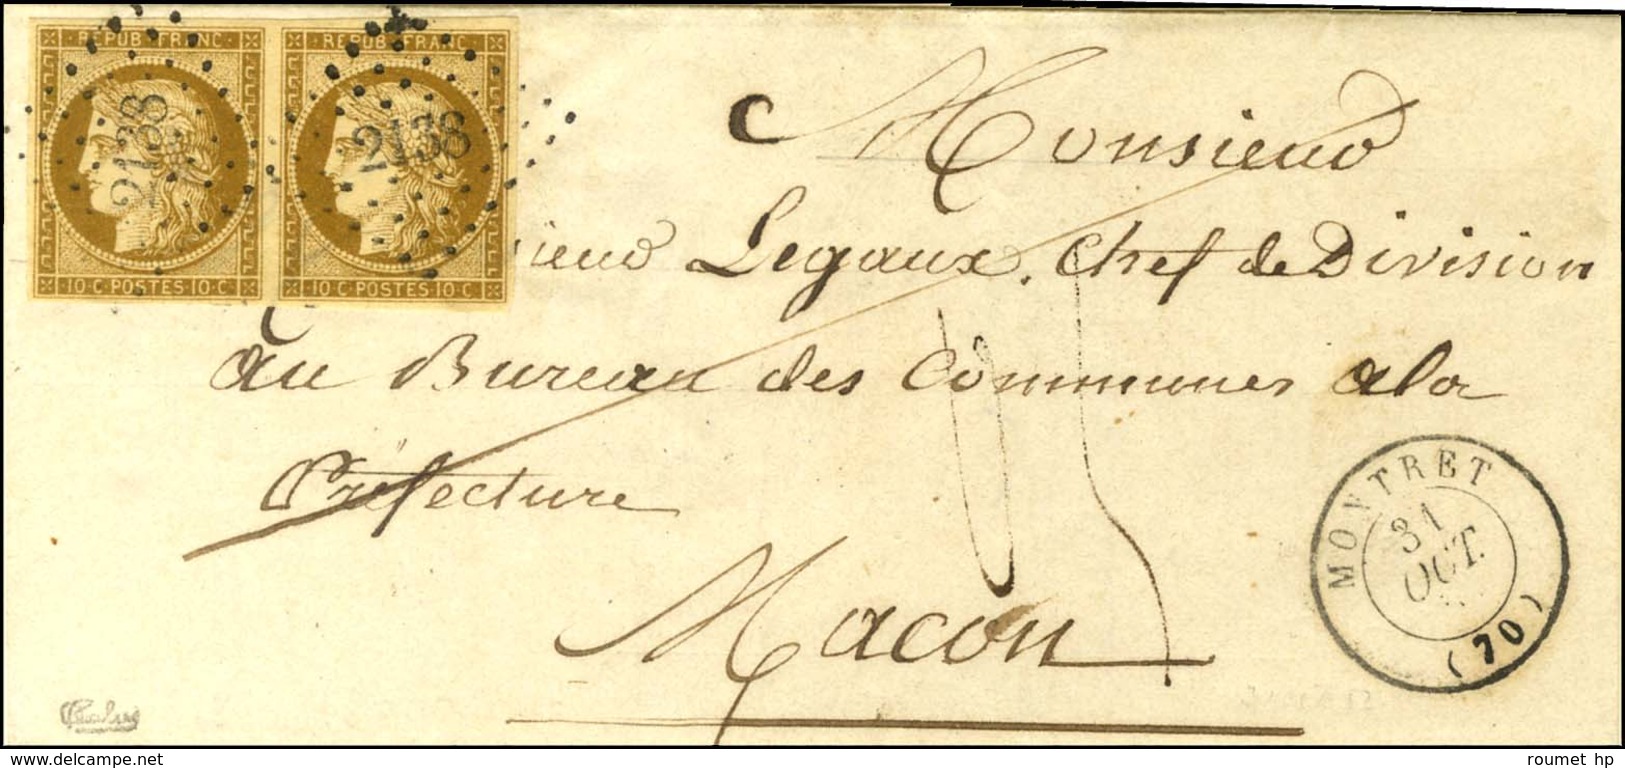 REPUB. FRANC. REPUB. FRANC.
2138 2138
10 C. POSTES 10 C. 10 C. POSTES 10 C.
C Monsieur
sieur Legaux, Chef de Division
au Bureau des Communes a la
Préfecture
Macon
MONTRET
31
OCT.
(70)
© roumet hp